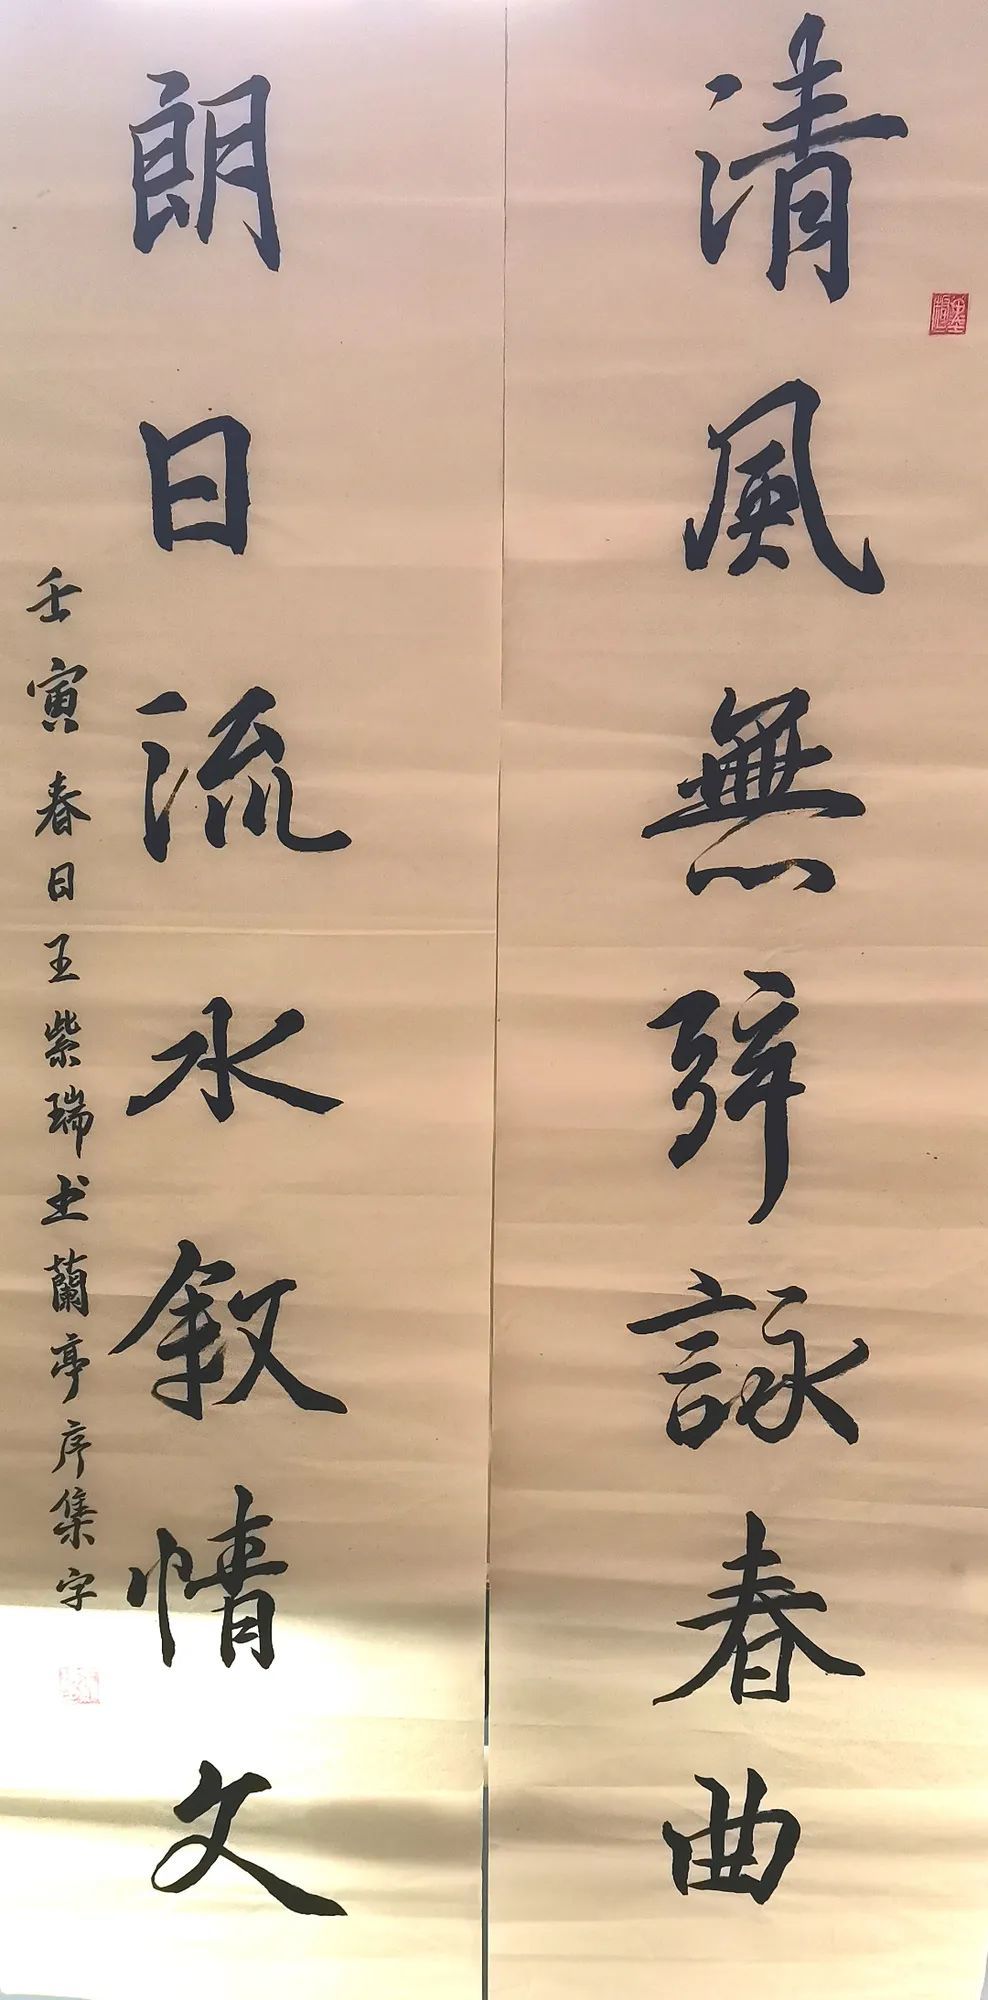 清風無弦詠春曲
朗日流水敘情文
壬寅春日王紫瑞书蘭亭序集字